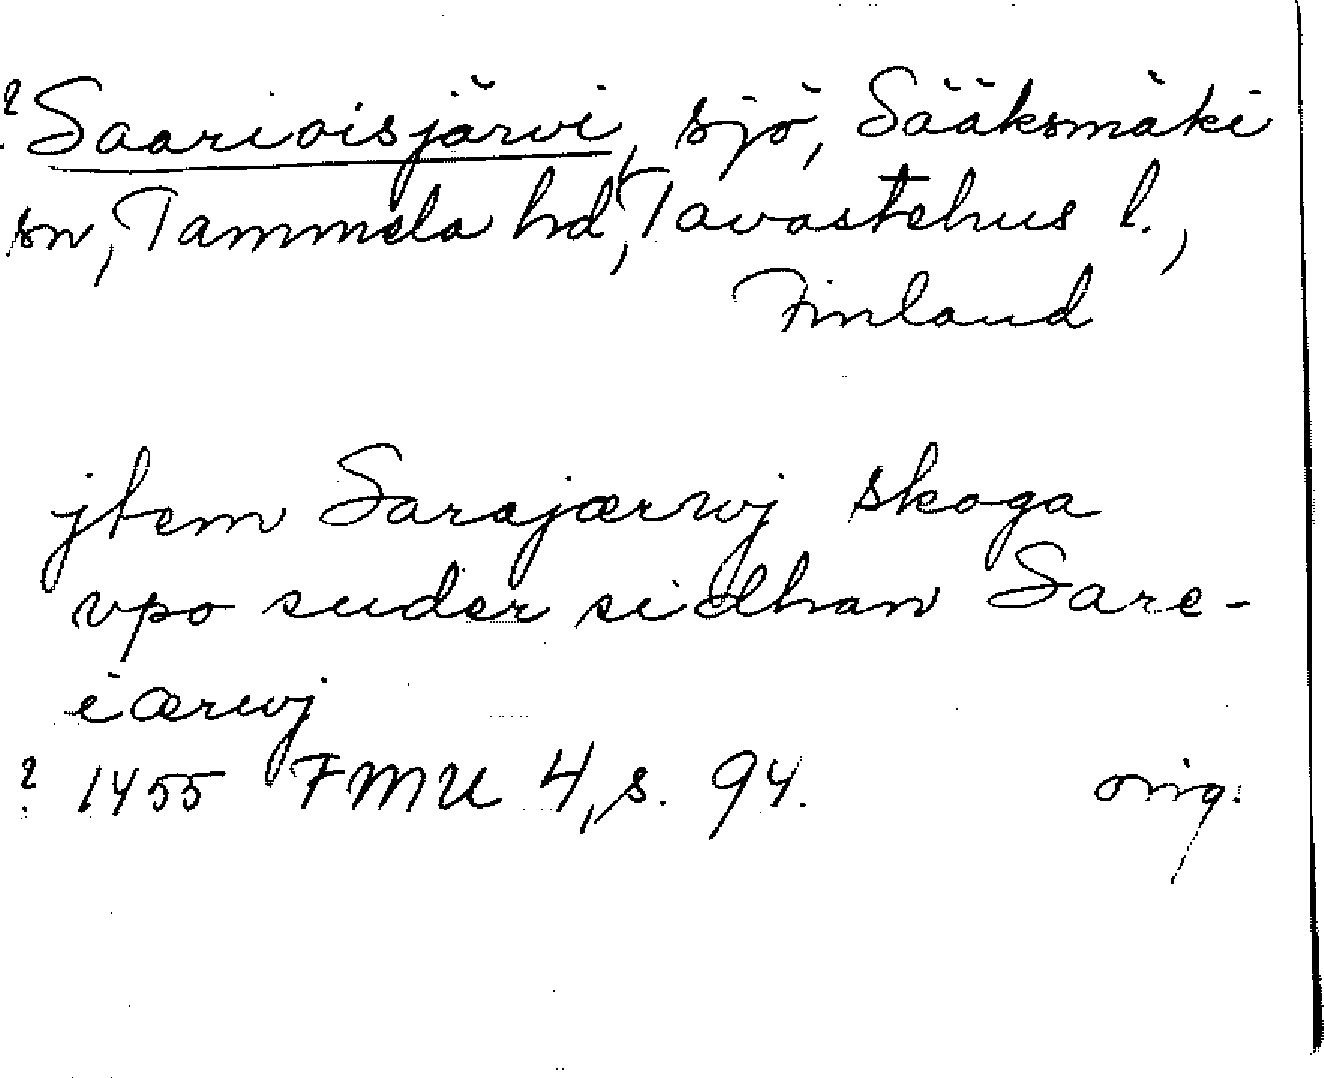 ? Saarioisjärvi, sjö, Sääksmäki
sn, Tammela hd, Tavastehus l.,
Finland
jtem Sarajærwj skoga
vpo suder sidhan Sare-
iærwj
? 1455 FMU 4, s. 94. orig.